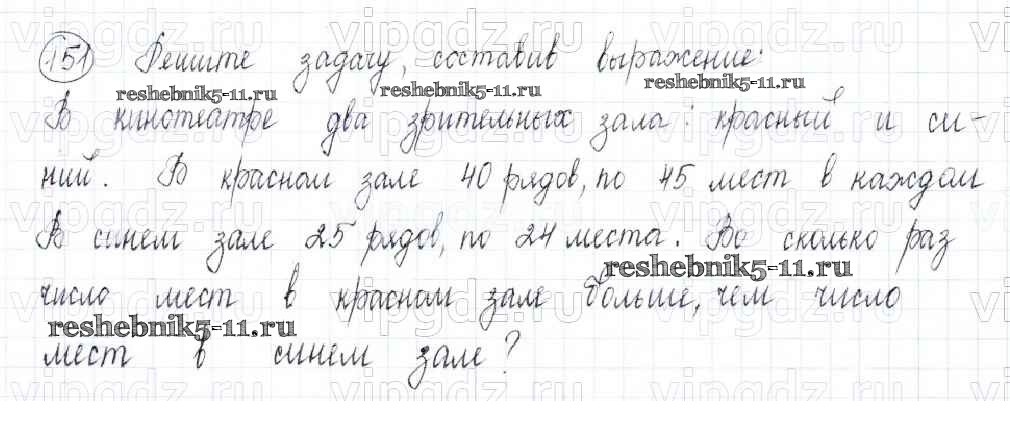 151 Решите задачу, составив выражение:
В кинотеатре два зрительных зала: красный и си-
ний. В красном зале 40 рядов, по 45 мест в каждом
В синем зале 25 рядов, по 24 места. Во сколько раз
число мест в красном зале больше, чем число
мест в синем зале?
vipgdz.ru
reshebnik5-11.ru
reshebnik5-11.ru
reshebnik5-11.ru
reshebnik5-11.ru
reshebnik5-11.ru